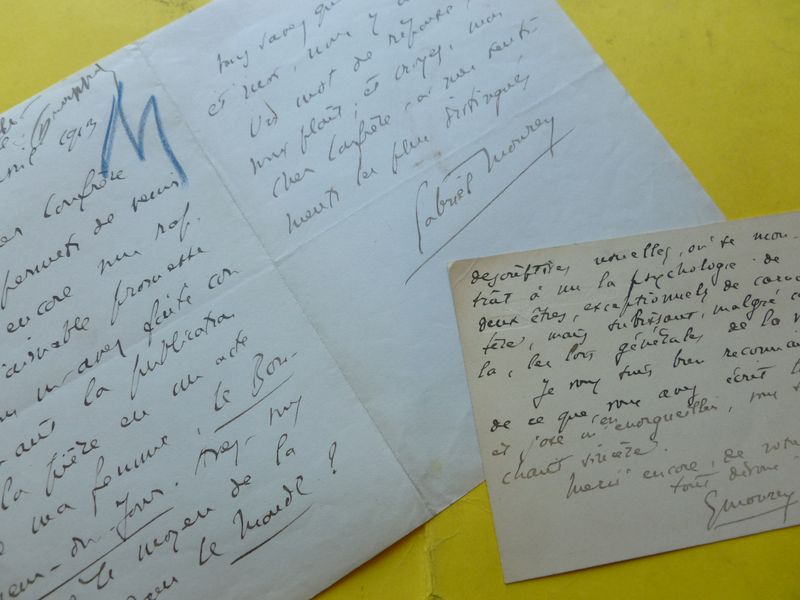 1913
M
Cher Confrère
permets de venir
encore
aimable promesse
m'avez faite con
la publication
la pièce en un acte
ma femme, le Bon-
-un-Jour. Avez-vous
le moyen de la
le Monde ?
vous savez
et moi, nous
Un mot de réponse,
vous plaît, et croyez, mon
cher Confrère, à mes senti-
ments les plus distingués
Gabriel Mourey
descriptives nouvelles, où se mon-
trât à nu la psychologie de
deux êtres, exceptionnels de carac
tère, mais subissant, malgré ce
la, les lois générales de la
Je vous suis bien reconnai
de ce que vous avez écrit
et j'ose m'en enorgueillir, vous
chant sincère.
Merci encore, de votre
tout dévoué
GMourey